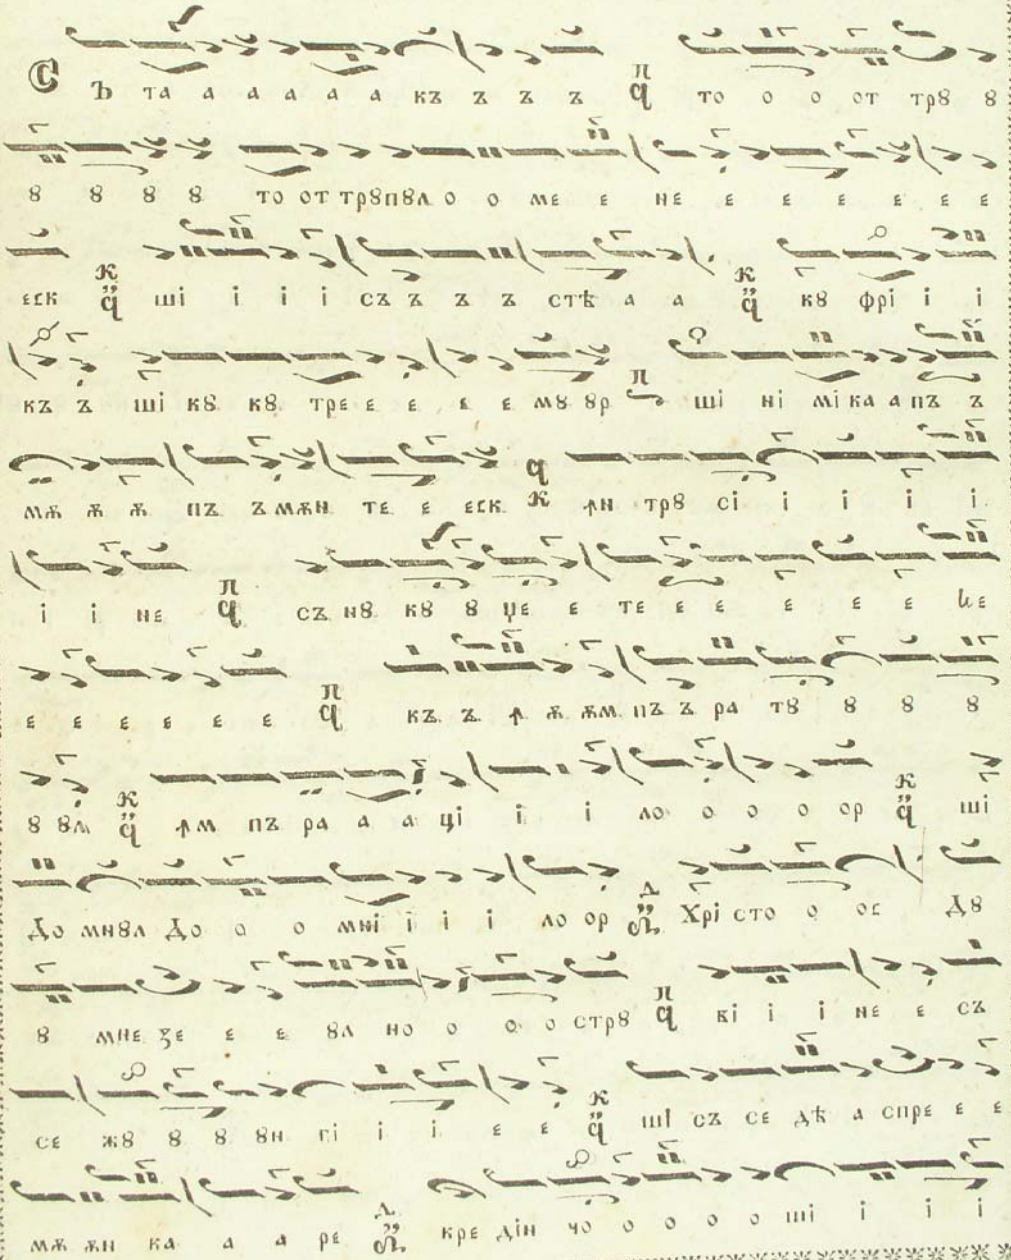 СЪ та а а а а а къ ъ ъ ъ П ч то о о от трȣ ȣ
ȣ ȣ ȣ ȣ то от трȣпȣл о о ме е не е е е е е е
еск К ч ші і і і съ ъ ъ ъ стѣ а а К ч кȣ фрі і і
къ ъ ші кȣ кȣ тре е е е е мȣ ȣр П ші ні мі ка а пъ ъ
мѫ ѫ ѫ пъ ъ мѫн те е еск ч К ꙟн трȣ сі і і і і
і і не П ч съ нȣ кȣ ȣ џе е те е е е е е
е е е е е е П ч къ ъ ꙟ ѫ ѫм пъ ъ ра тȣ ȣ ȣ ȣ
ȣ ȣл К ч ꙟм пъ ра а а ці і і ло о о о ор К ч ші
До мнȣл До о о мні і і і ло ор Д Хрі сто о ос Дȣ
ȣ мне зе е е ȣл но о о о стрȣ П ч ві і і не е съ
се жȣ ȣ ȣ ȣн гі і і е е К ч ші съ се дѣ а спре е е
мѫ ѫн ка а а ре Д кре дін чо о о о о ші і і і